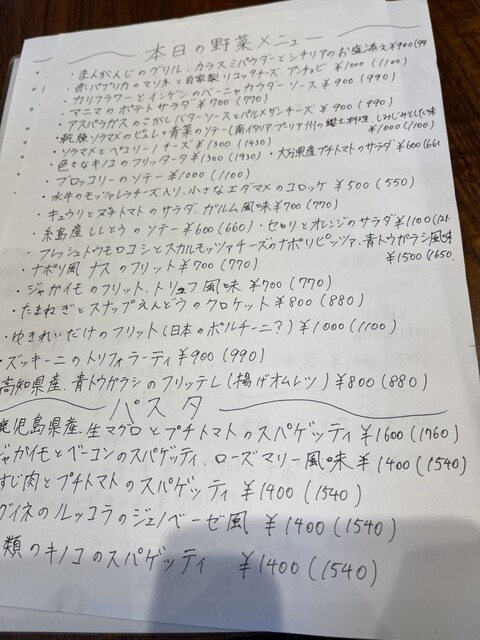 本日の野菜メニュー
・まんがんじのグリル、カラスミパウダーとシチリアのお塩添え ¥900(99
・赤パプリカのマリネと自家製リコッタチーズ、アンチョビ ¥1000(1100)
・カリフラワーとインゲンのバーニャカウダーソース ¥900(990)
・マニマのポテトサラダ ¥700(770)
・アスパラガスのこがしバターソースとパルメザンチーズ ¥900(990)
・乾燥ソラマメのピュレと青菜のソテー(南イタリアプーリア州の郷土料理、しみじみとした味 ¥1000(1100)
・ソラマメとペコリーノチーズ ¥1300(1430)
・色々なキノコのフリッタータ ¥1300(1430) ・大分県産プチトマトのサラダ ¥600(660
・ブロッコリーのソテー ¥1000(1100)
・水牛のモッツァレラチーズ入り、小さなエダマメのコロッケ ¥500(550)
・キュウリとヌキトマトのサラダ、ガルム風味 ¥700(770)
・糸島産ししとうのソテー ¥600(660) ・セロリとオレンジのサラダ ¥1100(121
・フレッシュトウモロコシとスカルモッツァチーズのナポリピッツァ、青トウガラシ風味 ¥1500(1650
・ナポリ風ナスのフリット ¥700(770)
・ジャガイモのフリット、トリュフ風味 ¥700(770)
・たまねぎとスナップえんどうのクロケット ¥800(880)
・ゆきれいだけのフリット(日本のポルチーニ?) ¥1000(1100)
・ズッキーニのトリフォラーティ ¥900(990)
高知県産、青トウガラシのフリッテレ(揚げオムレツ) ¥800(880)
パスタ
鹿児島県産、生マグロとプチトマトのスパゲッティ ¥1600(1760)
ジャガイモとベーコンのスパゲッティ、ローズマリー風味 ¥1400(1540)
すじ肉とプチトマトのスパゲッティ ¥1400(1540)
グイネのルッコラのジェノベーゼ風 ¥1400(1540)
類のキノコのスパゲッティ ¥1400(1540)